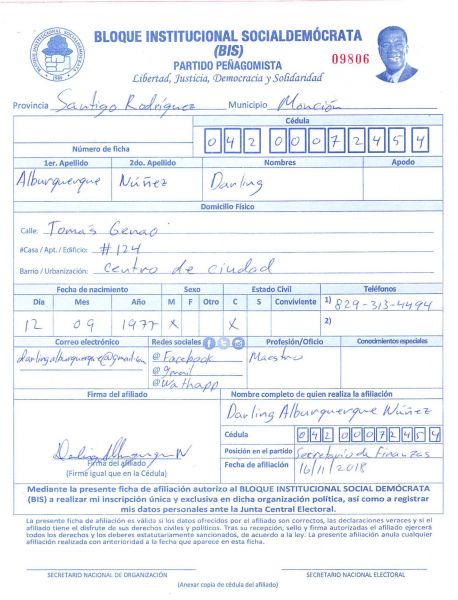 BLOQUE INSTITUCIONAL SOCIALDEMÓCRATA
(BIS)
PARTIDO PEÑAGOMISTA
09806
Libertad, Justicia, Democracia y Solidaridad
Provincia Santigo Rodríguez Municipio Monción
Cédula
Número de ficha 042 0007245 4
1er. Apellido 2do. Apellido Nombres Apodo
Alburquerque Núñez Darling
Domicilio Físico
Calle: Tomás Genao
#Casa / Apt. / Edificio: #124
Barrio / Urbanización: centro de ciudad
Fecha de nacimiento Sexo Estado Civil Teléfonos
Día Mes Año M F Otro C S Conviviente 1) 829-313-4494
12 09 1977 X X 2)
Correo electrónico Redes sociales Profesión/Oficio Conocimientos especiales
darlingalburquerque@gmail.com @Facebook Maestro
@gmail
@Wathapp
Firma del afiliado Nombre completo de quien realiza la afiliación
Darling Alburquerque Núñez
Cédula 042 0007245 4
Posición en el partido Secretario de Finanzas
Firma del afiliado
Fecha de afiliación 16/11/2018
(Firme igual que en la Cédula)
Mediante la presente ficha de afiliación autorizo al BLOQUE INSTITUCIONAL SOCIAL DEMÓCRATA
(BIS) a realizar mi inscripción única y exclusiva en dicha organización política, así como a registrar
mis datos personales ante la Junta Central Electoral.
La presente ficha de afiliación es válida si los datos ofrecidos por el afiliado son correctos, las declaraciones veraces y si el
afiliado tiene el disfrute de sus derechos civiles y políticos. Tras su recepción, sello y firma autorizados el afiliado ejercerá
todos los derechos y los deberes estatutariamente sancionados, de acuerdo a la ley. La presente afiliación anula cualquier
afiliación realizada con anterioridad a la fecha que aparece en esta ficha.
SECRETARIO NACIONAL DE ORGANIZACIÓN SECRETARIO NACIONAL ELECTORAL
(Anexar copia de cédula del afiliado)